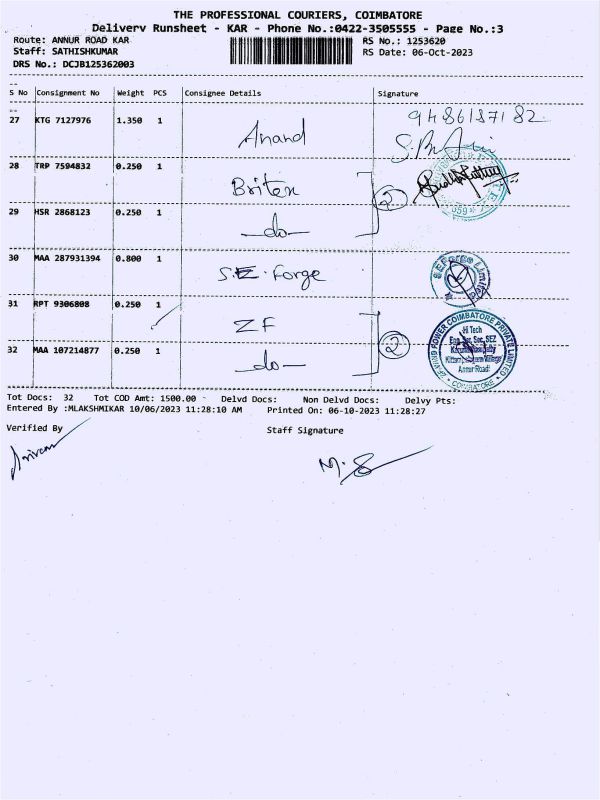 THE PROFESSIONAL COURIERS, COIMBATORE
Delivery Runsheet - KAR - Phone No.:0422-3505555 - Page No.:3
Route: ANNUR ROAD KAR RS No.: 1253620
Staff: SATHISHKUMAR RS Date: 06-Oct-2023
DRS No.: DCJB125362003
S No Consignment No Weight PCS Consignee Details Signature
27 KTG 7127976 1.350 1 Anand 9486187182
28 TRP 7594832 0.250 1 Briten 2
29 HSR 2868123 0.250 1 —do—
30 MAA 287931394 0.800 1 S.E. Forge SEForge Limited
31 RPT 9306808 0.250 1 ZF 2
32 MAA 107214877 0.250 1 —do—
WIND POWER COIMBATORE PRIVATE LIMITED
Hi Tech
SEZ
Annur Road
COIMBATORE
Tot Docs: 32 Tot COD Amt: 1500.00 Delvd Docs: Non Delvd Docs: Delvy Pts:
Entered By :MLAKSHMIKAR 10/06/2023 11:28:10 AM Printed On: 06-10-2023 11:28:27
Verified By Staff Signature